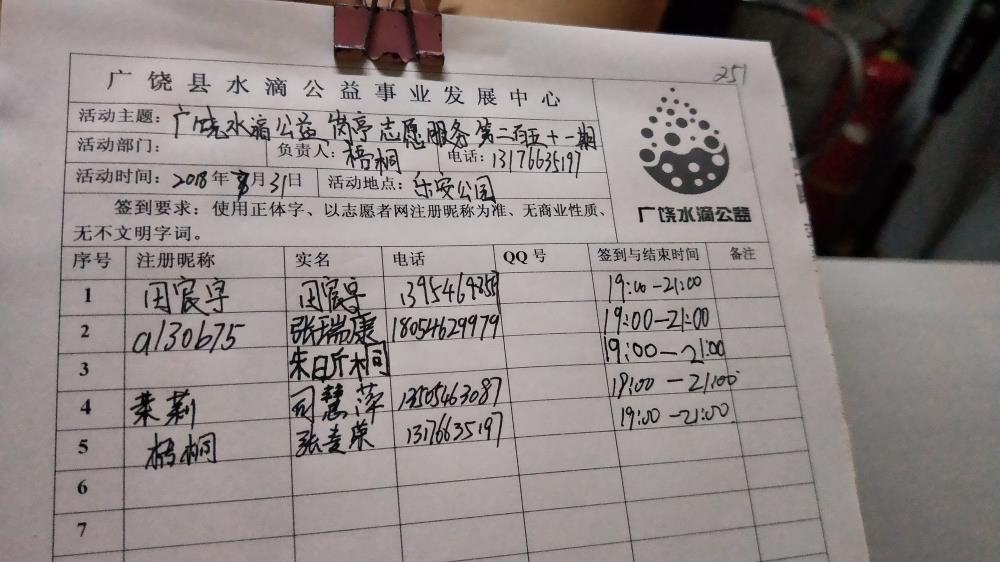 251
广饶县水滴公益事业发展中心
活动主题：广饶水滴公益岗亭志愿服务第二百五十一期
活动部门： 负责人：梧桐 电话：13176635197
活动时间：2018年 月31日 活动地点：乐安公园
签到要求：使用正体字、以志愿者网注册昵称为准、无商业性质、
无不文明字词。
广饶水滴公益
序号 注册昵称 实名 电话 QQ号 签到与结束时间 备注
1 田宸宇 田宸宇 19:00-21:00
2 a130675 张瑞康 18054629979 19:00-21:00
3 19:00-21:00
4 茉莉 司慧萍 13505463087 19:00-21:00
5 梧桐 13176635197 19:00-21:00
6
7